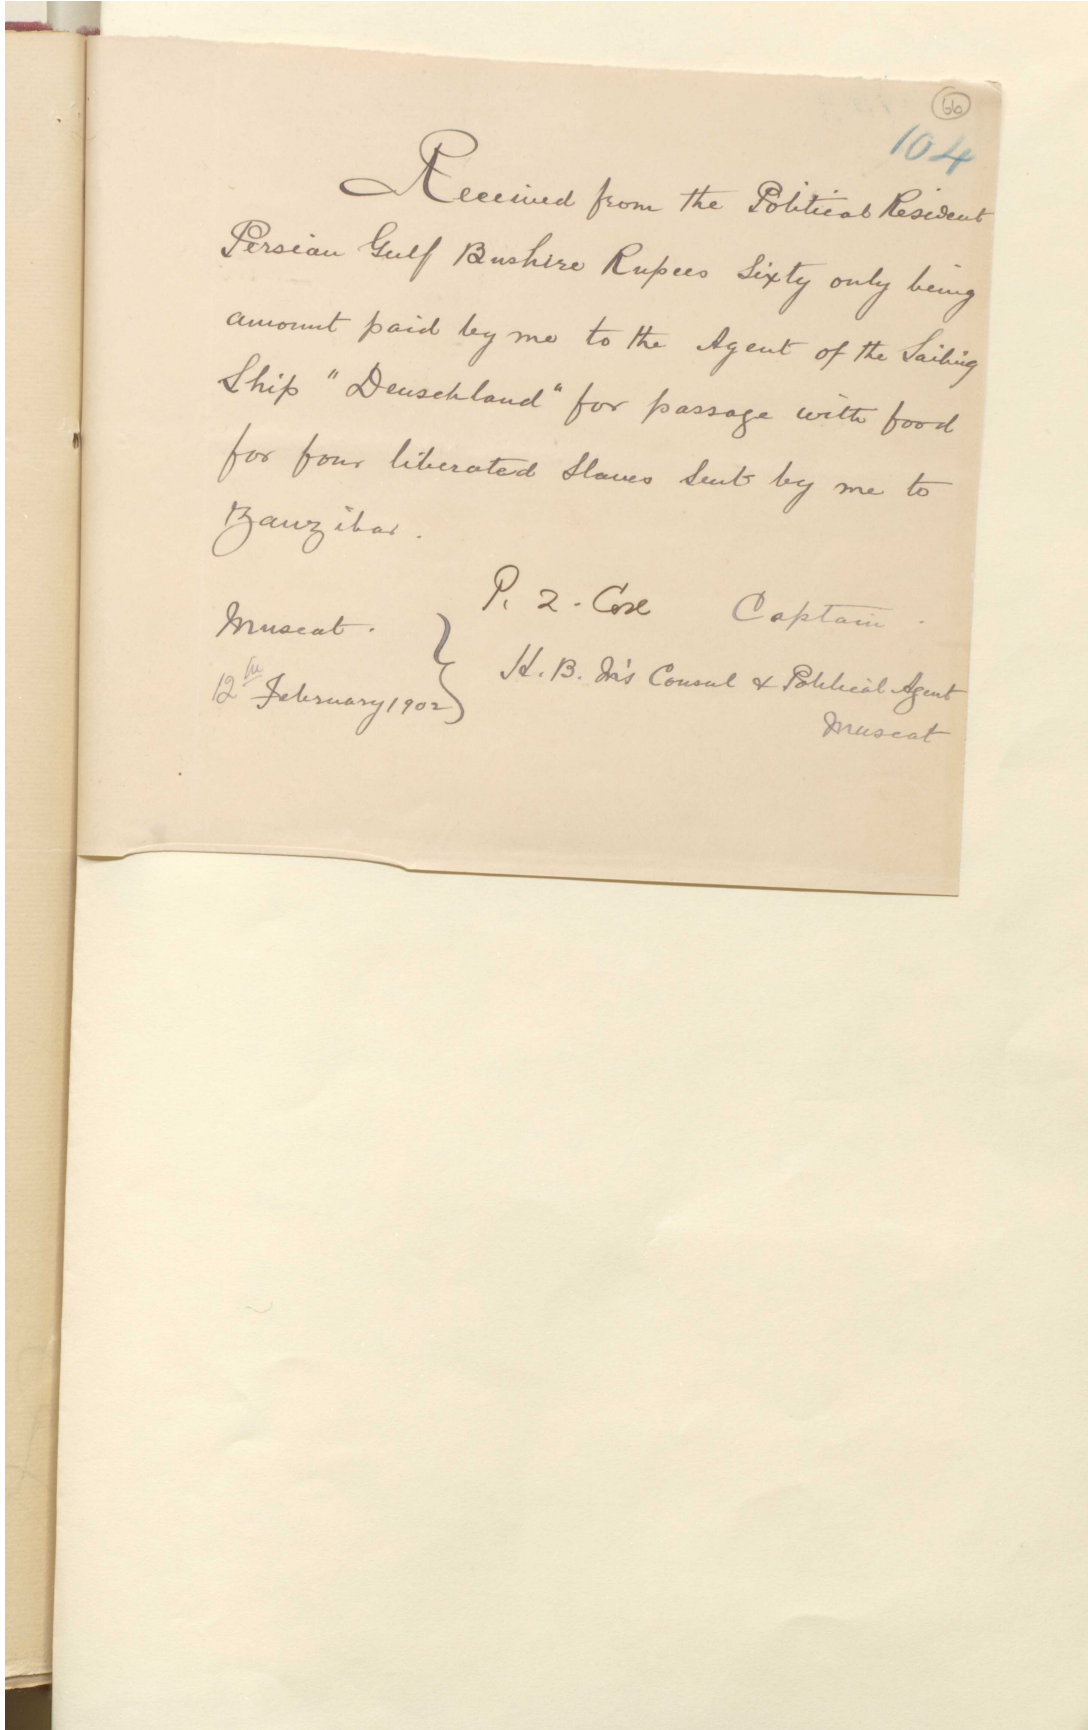 66
104
Received from the Political Resident
Persian Gulf Bushire Rupees Sixty only being
amount paid by me to the Agent of the Sailing
Ship "Deuschland" for passage with food
for four liberated Slaves sent by me to
Zanzibar.
P. Z. Cox Captain.
Muscat.
H. B. M's Consul & Political Agent
12th February 1902
Muscat